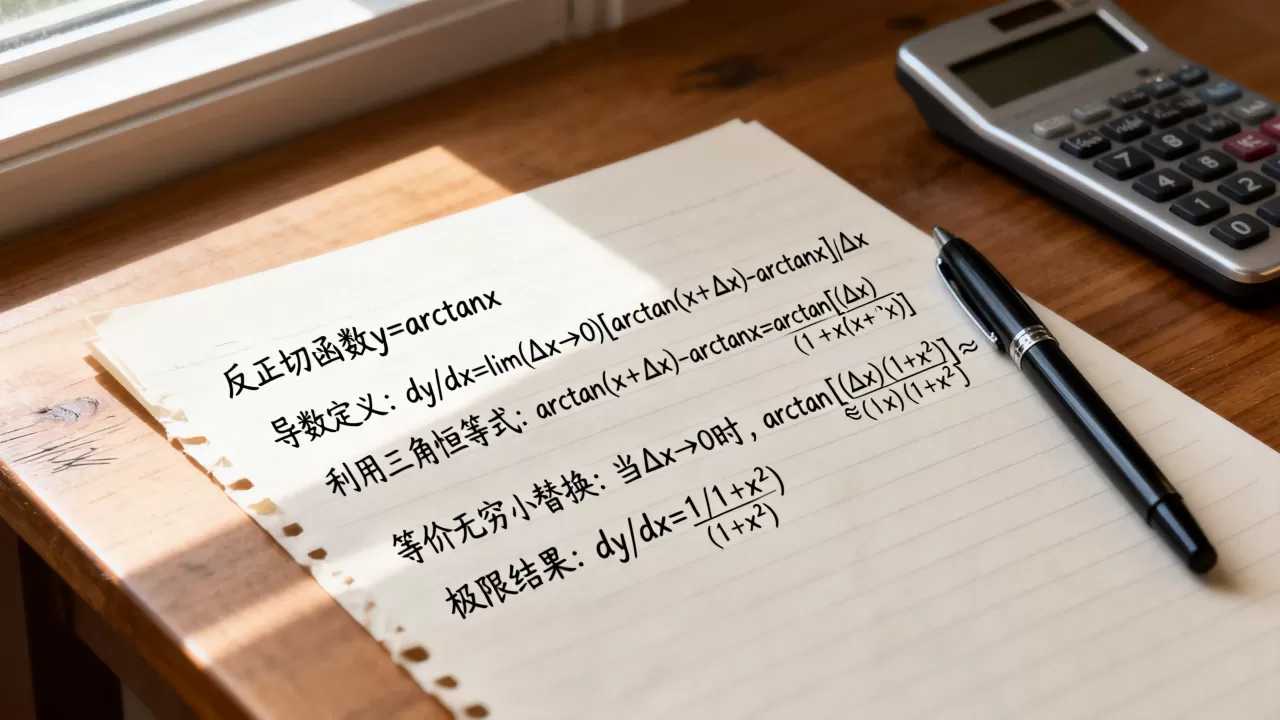 反正切函数y=arctanx
导数定义: dy/dx=lim(Δx→0)[arctan(x+Δx)-arctanx]/Δx
利用三角恒等式: arctan(x+Δx)-arctanx=arctan[(Δx)
(1+x(x+ x)]
等价无穷小替换: 当Δx→0时, arctan[(Δx)(1+x²)]≈
≈(1x)(1+x²)
极限结果: dy/dx=1/1+x²)
(1+x²)
7 8
4 8
1 2
0